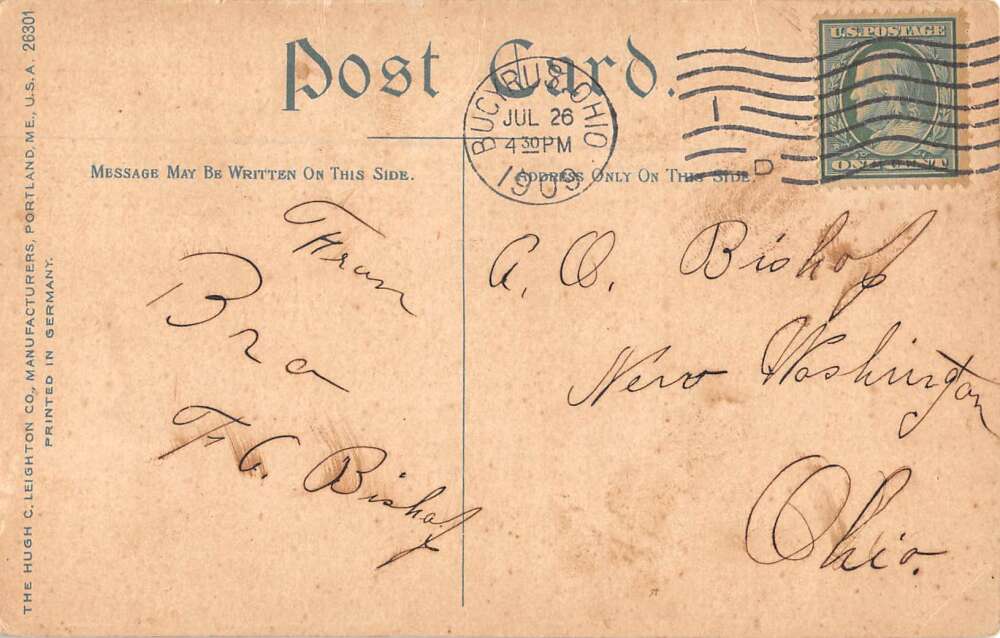 Post Card.
BUCYRUS, OHIO
JUL 26
4 30 PM
1909
1
D
U.S. POSTAGE
MESSAGE MAY BE WRITTEN ON THIS SIDE.
ADDRESS ONLY ON THIS SIDE.
From
Bro
F. C. Bishop
A. O. Bishop
New Washington
Ohio.
THE HUGH C. LEIGHTON CO., MANUFACTURERS, PORTLAND, ME., U.S.A. 26301
PRINTED IN GERMANY.